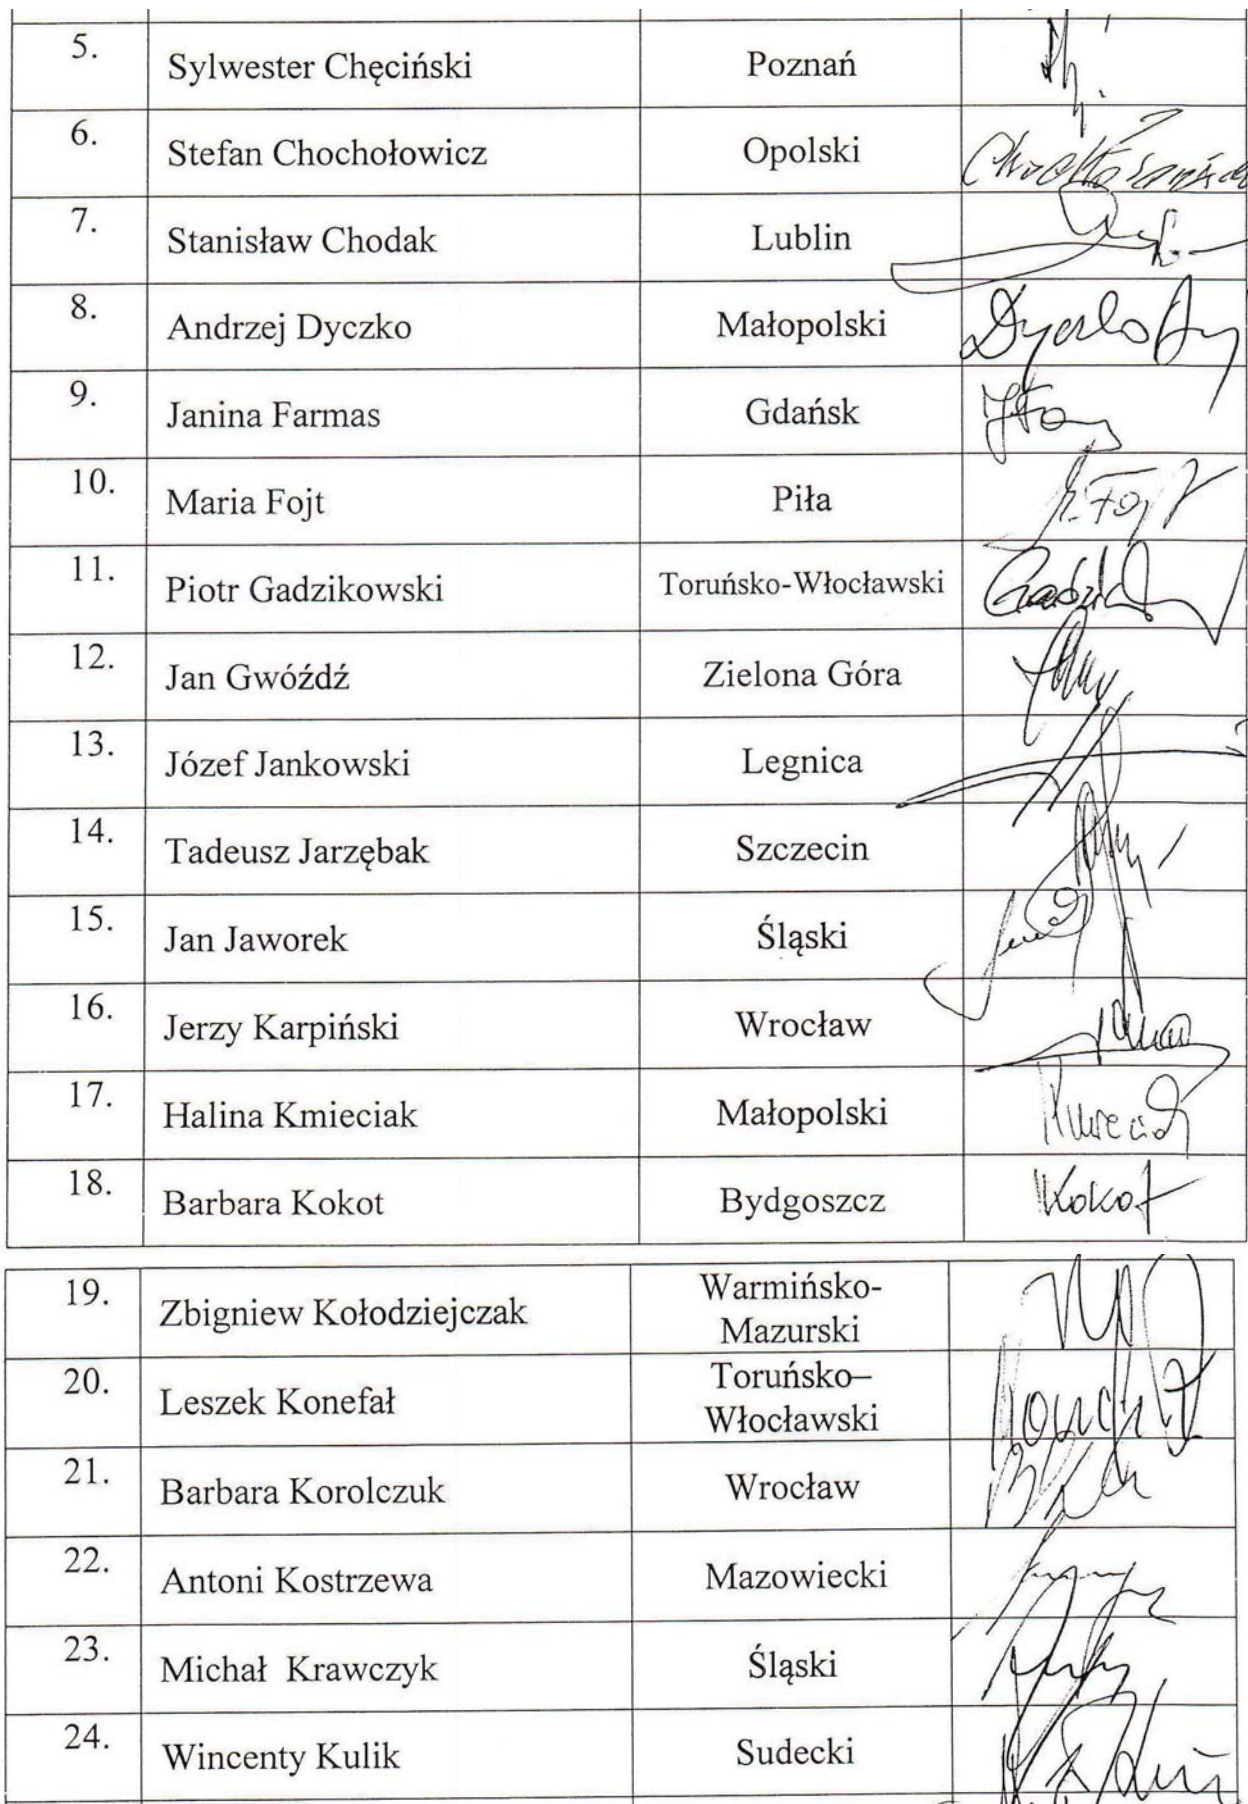 5. Sylwester Chęciński Poznań
6. Stefan Chochołowicz Opolski
7. Stanisław Chodak Lublin
8. Andrzej Dyczko Małopolski
9. Janina Farmas Gdańsk
10. Maria Fojt Piła
11. Piotr Gadzikowski Toruńsko-Włocławski
12. Jan Gwóźdź Zielona Góra
13. Józef Jankowski Legnica
14. Tadeusz Jarzębak Szczecin
15. Jan Jaworek Śląski
16. Jerzy Karpiński Wrocław
17. Halina Kmieciak Małopolski
18. Barbara Kokot Bydgoszcz Kokot
19. Zbigniew Kołodziejczak Warmińsko-
Mazurski
20. Leszek Konefał Toruńsko–
Włocławski
21. Barbara Korolczuk Wrocław
22. Antoni Kostrzewa Mazowiecki
23. Michał Krawczyk Śląski
24. Wincenty Kulik Sudecki